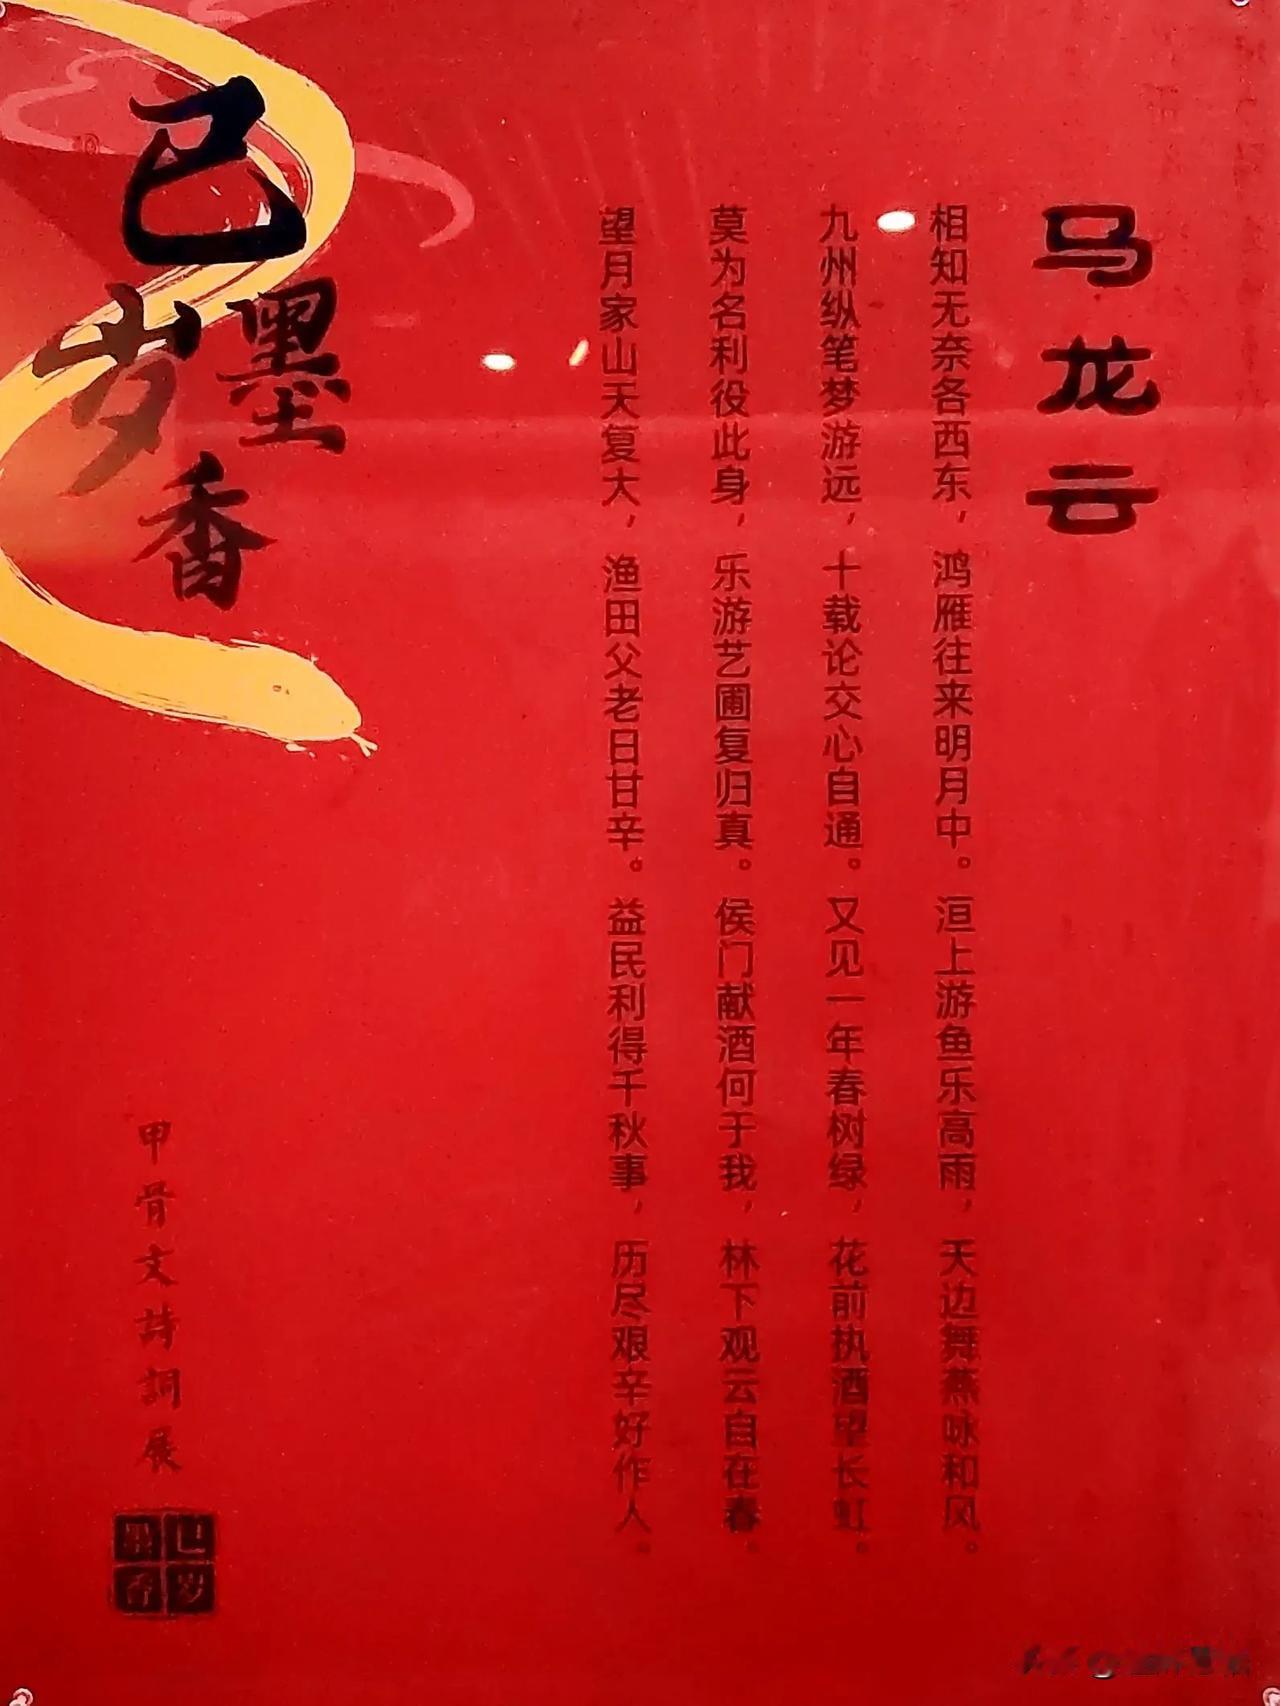 马龙云
相知无奈各西东，鸿雁往来明月中。洹上游鱼乐高雨，天边舞燕咏和风。
九州纵笔梦游远，十载论交心自通。又见一年春树绿，花前执酒望长虹。
莫为名利役此身，乐游艺圃复归真。侯门献酒何于我，林下观云自在春。
望月家山天复大，渔田父老日甘辛。益民利得千秋事，历尽艰辛好作人。
巳岁墨香
甲骨文詩詞展
巳岁墨香